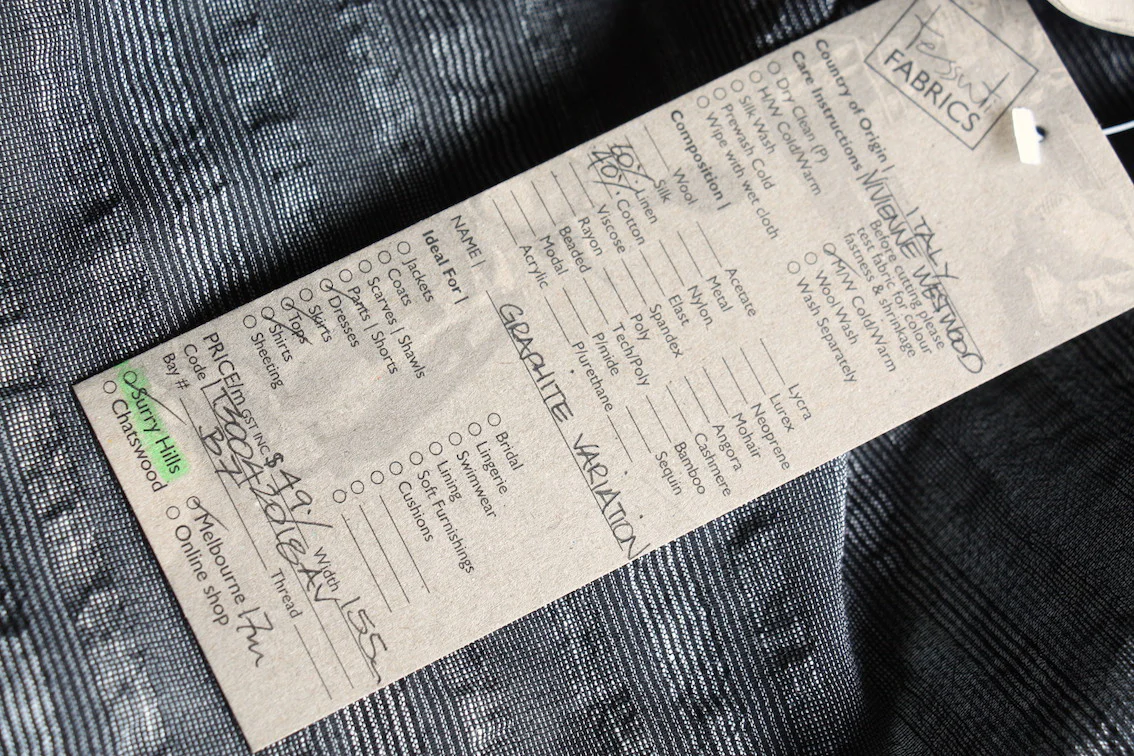 Tessuti
FABRICS
Country of Origin | ITALY
Care Instructions VIVIENNE WESTWOOD
Dry Clean (P)
H/W Cold/Warm
Silk Wash
Prewash Cold
Wipe with wet cloth
Before cutting please
test fabric for colour
fastness & shrinkage
M/W Cold/Warm
Wool Wash
Wash Separately
Composition |
Wool
Silk
Linen
40% Cotton
Viscose
Rayon
Beaded
Modal
Acrylic
Acetate
Metal
Nylon
Elast
Spandex
Poly
Tech/Poly
P/imide
P/urethane
Lycra
Lurex
Neoprene
Mohair
Angora
Cashmere
Bamboo
Sequin
NAME | GRAPHITE VARIATION
Ideal For |
Jackets
Coats
Scarves | Shawls
Pants | Shorts
Dresses
Skirts
Tops
Shirts
Sheeting
Bridal
Lingerie
Swimwear
Lining
Soft Furnishings
Cushions
PRICE/m GST INC $49./ Width 155
Code |
Bay # B7 Thread
Surry Hills
Chatswood
Melbourne 17m
Online shop